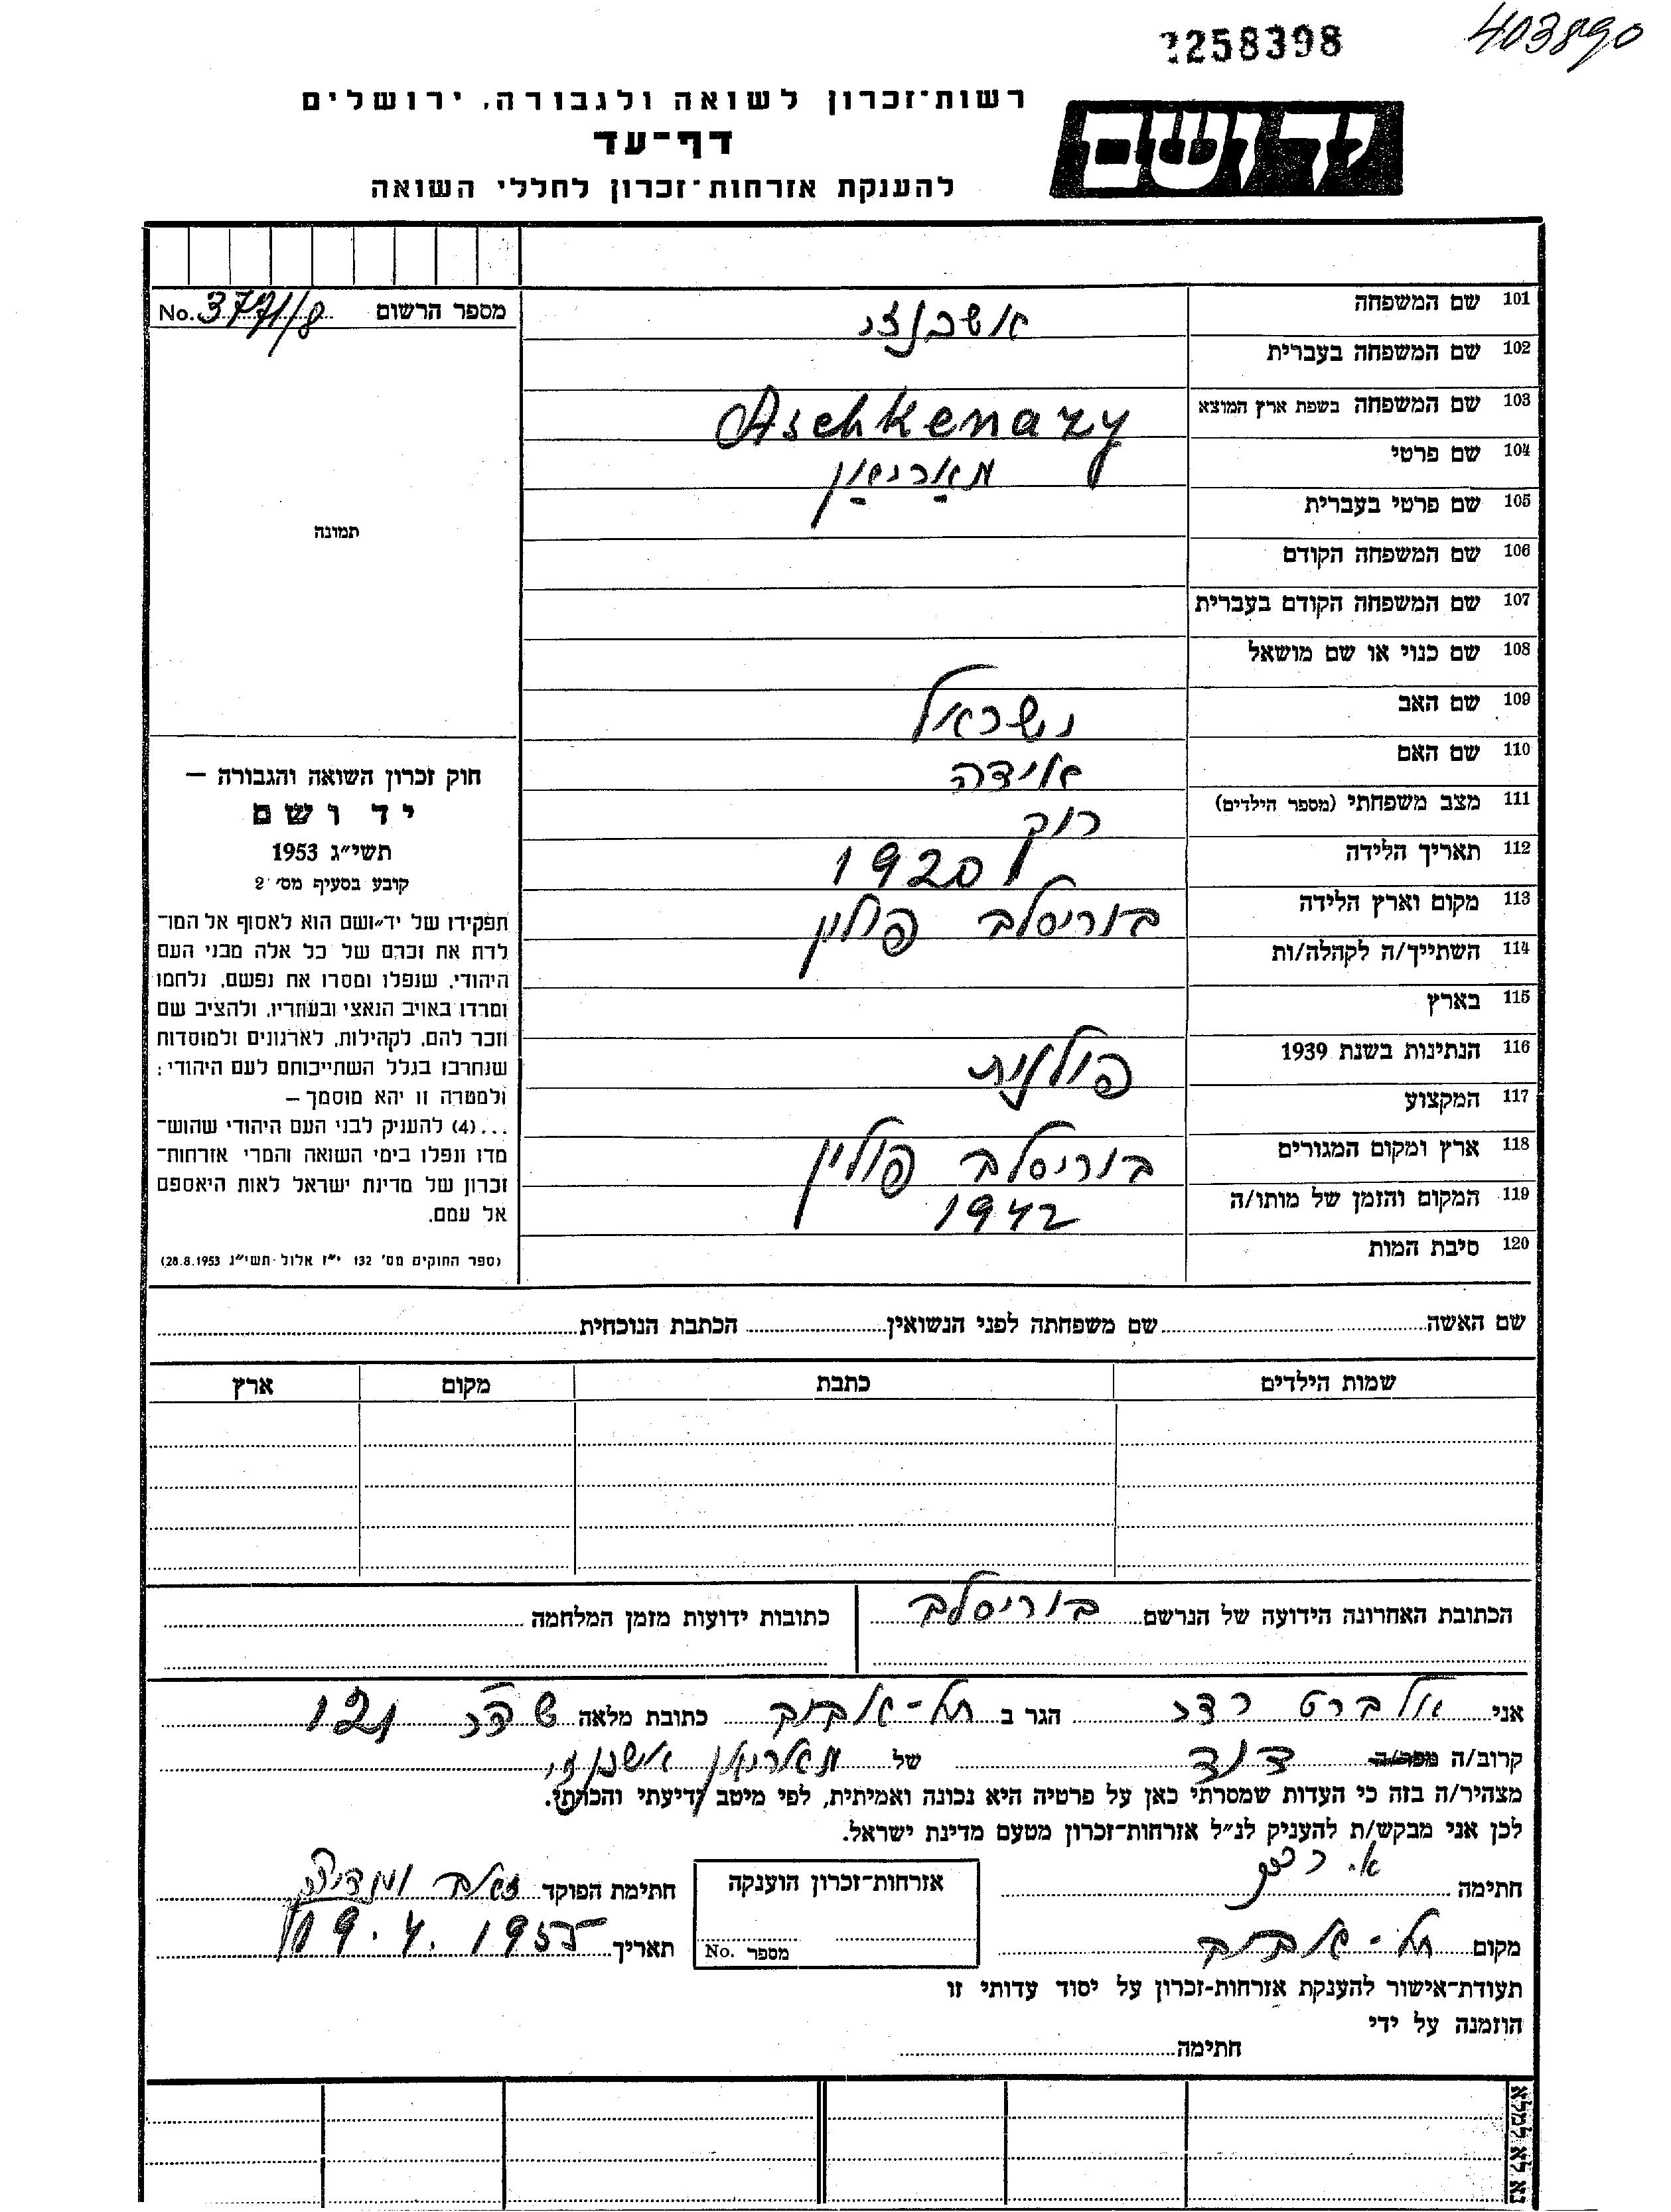 258398
403890
רשות־זכרון לשואה ולגבורה, ירושלים
יד ושם
דף־עד
להענקת אזרחות־זכרון לחללי השואה
מספר הרשום No. 3771/8
תמונה
101 שם המשפחה אשכנזי
102 שם המשפחה בעברית
103 שם המשפחה בשפת ארץ המוצא Aschkenazy
104 שם פרטי מאַריאַן
105 שם פרטי בעברית
106 שם המשפחה הקודם
107 שם המשפחה הקודם בעברית
108 שם כנוי או שם מושאל
109 שם האב ישראל
110 שם האם אידה
111 מצב משפחתי (מספר הילדים) רוק
112 תאריך הלידה 1920
113 מקום וארץ הלידה בוריסלב פולין
114 השתייך/ה לקהלה/ות
115 בארץ
116 הנתינות בשנת 1939 פולנית
117 המקצוע
118 ארץ ומקום המגורים בוריסלב פולין
119 המקום והזמן של מותו/ה 1942
120 סיבת המות
חוק זכרון השואה והגבורה —
יד ושם
תשי״ג 1953
קובע בסעיף מס׳ 2
תפקידו של יד־ושם הוא לאסוף אל המו־
לדת את זכרם של כל אלה מבני העם
היהודי, שנפלו ומסרו את נפשם, נלחמו
ומרדו באויב הנאצי ובעוזריו, ולהציב שם
וזכר להם, לקהילות, לארגונים ולמוסדות
שנחרבו בגלל השתייכותם לעם היהודי:
ולמטרה זו יהא מוסמך —
...(4) להעניק לבני העם היהודי שהוש־
מדו ונפלו בימי השואה והמרי אזרחות־
זכרון של מדינת ישראל לאות היאספם
אל עמם.
(ספר החוקים מס׳ 132 י״ז אלול תשי״ג 28.8.1953)
שם האשה שם משפחתה לפני הנשואין הכתבת הנוכחית
שמות הילדים כתבת מקום ארץ
הכתובת האחרונה הידועה של הנרשם בוריסלב כתובות ידועות מזמן המלחמה
אני אלברט רדר הגר ב תל-אביב כתובת מלאה 121
קרוב/ה מכר/ה דוד של מאריאן אשכנזי
מצהיר/ה בזה כי העדות שמסרתי כאן על פרטיה היא נכונה ואמיתית, לפי מיטב ידיעתי והכרתי.
לכן אני מבקש/ת להעניק לנ״ל אזרחות־זכרון מטעם מדינת ישראל.
חתימה אזרחות־זכרון הוענקה חתימת הפוקד
מקום תל-אביב מספר No. תאריך 19.4.1955
תעודת־אישור להענקת אזרחות-זכרון על יסוד עדותי זו
הוזמנה על ידי
חתימה
נא לא למלא